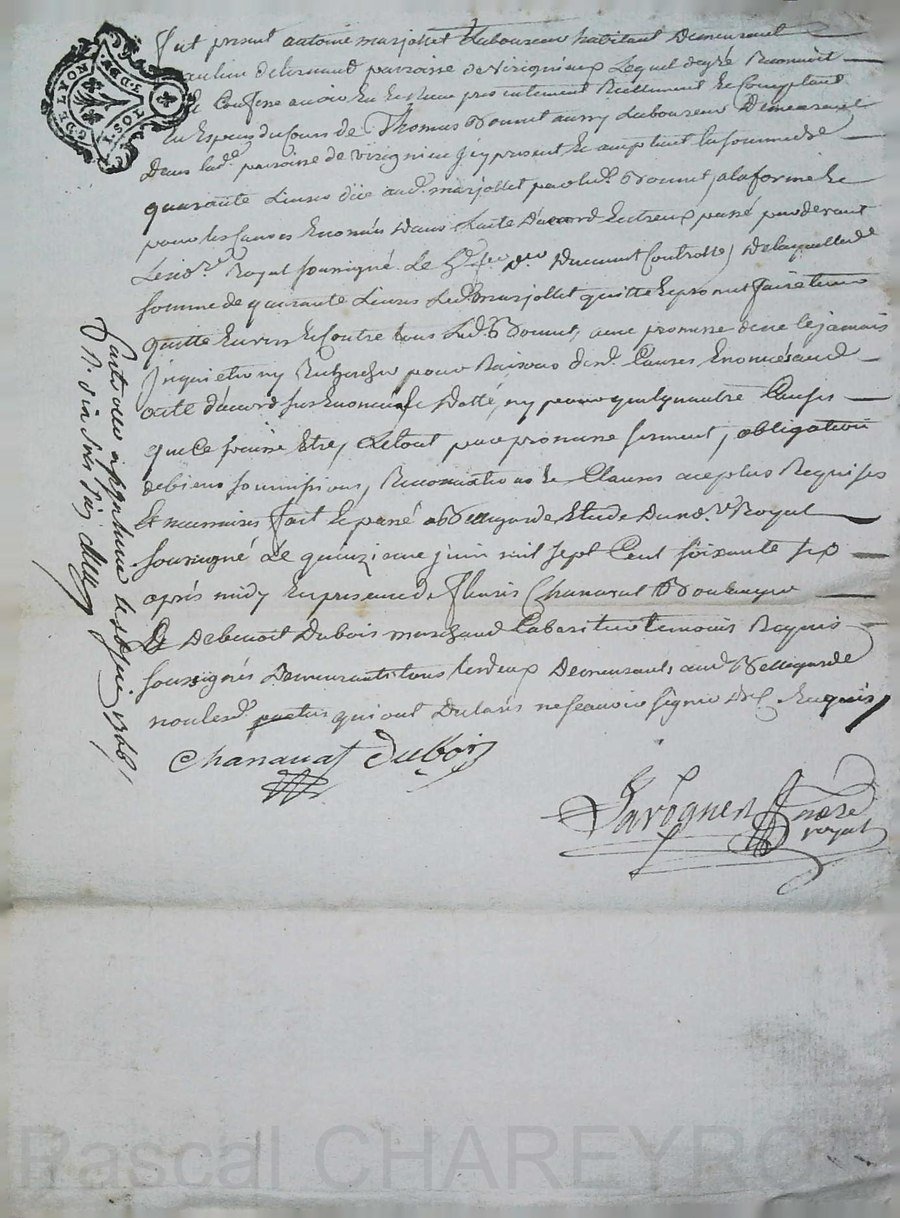 G. DE LYON
1. SOL
Fut present antoine marjollet Laboureur habitant Demeurant
au lieu de paroisse de virignieux Lequel degré Reconnoit
et Confesse avoir Eu et Receu presentement Reellement et Comptant
En Especes du Cours de Thomas Bonnet aussy Laboureur Demeurant
Dans lad.e paroisse de virignieu Jcy present et acceptant la somme de
quarante Livres due aud. marjollet par led. Bonnet, a la forme et
pour les Causes Enoncées Dans L'acte D'accord Entreux passé pardevant
Le no.re Royal soussigné Le Duement Controllé, De laquelle de
somme de quarante Livres Led. Marjollet quitte et promet faire tenir
quitte Envers et Contre tous Led. Bonnet, avec promesse de ne le jamais
Jnquietter ny Rechercher pour Raisons desd. Causes Enoncées aud.
acte d'accord sus Enoncé et Datté, ny pour quelqu'autre Cause
que Ce puisse Etre, Le tout par promesse serment, obligation
de biens soumissions, Renonciations et Clauses a ce plus Requises
et necessaires fait et passé a Bellegarde Etude Du no.re Royal
soussigné Le quinzieme juin mil sept Cent soixante six
après midy En presence de fleuris Chanavat Boulanger
Et De benoit Dubois marchand Cabaretier temoins Requis
soussignés Demeurants tous les deux Demeurants aud. Bellegarde
non led. parties qui ont Declaré ne sçavoir signer De ce Enquis
Chanavat Dubois
no.re
royal
juin 1766